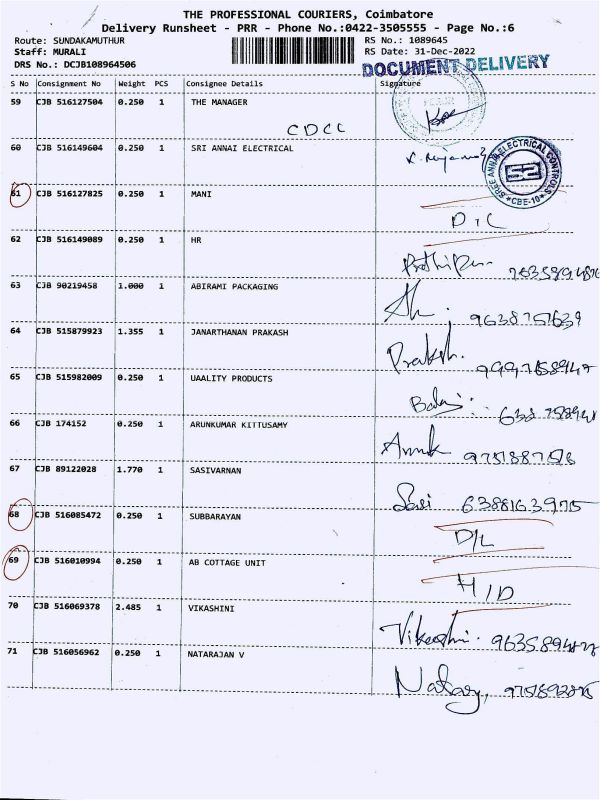 THE PROFESSIONAL COURIERS, Coimbatore
Delivery Runsheet - PRR - Phone No.:0422-3505555 - Page No.:6
Route: SUNDAKAMUTHUR RS No.: 1089645
Staff: MURALI RS Date: 31-Dec-2022
DRS No.: DCJB108964506
DOCUMENT DELIVERY
S No Consignment No Weight PCS Consignee Details Signature
59 CJB 516127504 0.250 1 THE MANAGER
CDCC
60 CJB 516149604 0.250 1 SRI ANNAI ELECTRICAL
SREE ANNAI ELECTRICAL CONTROLS
*CBE-10*
61 CJB 516127825 0.250 1 MANI
D I L
62 CJB 516149089 0.250 1 HR
63 CJB 90219458 1.000 1 ABIRAMI PACKAGING
9638757639
64 CJB 515879923 1.355 1 JANARTHANAN PRAKASH
Prakash.
65 CJB 515982009 0.250 1 UAALITY PRODUCTS
66 CJB 174152 0.250 1 ARUNKUMAR KITTUSAMY
67 CJB 89122028 1.770 1 SASIVARNAN
Sasi 6388163975
68 CJB 516085472 0.250 1 SUBBARAYAN
D/L
69 CJB 516010994 0.250 1 AB COTTAGE UNIT
H/D
70 CJB 516069378 2.485 1 VIKASHINI
Vikashni.
71 CJB 516056962 0.250 1 NATARAJAN V